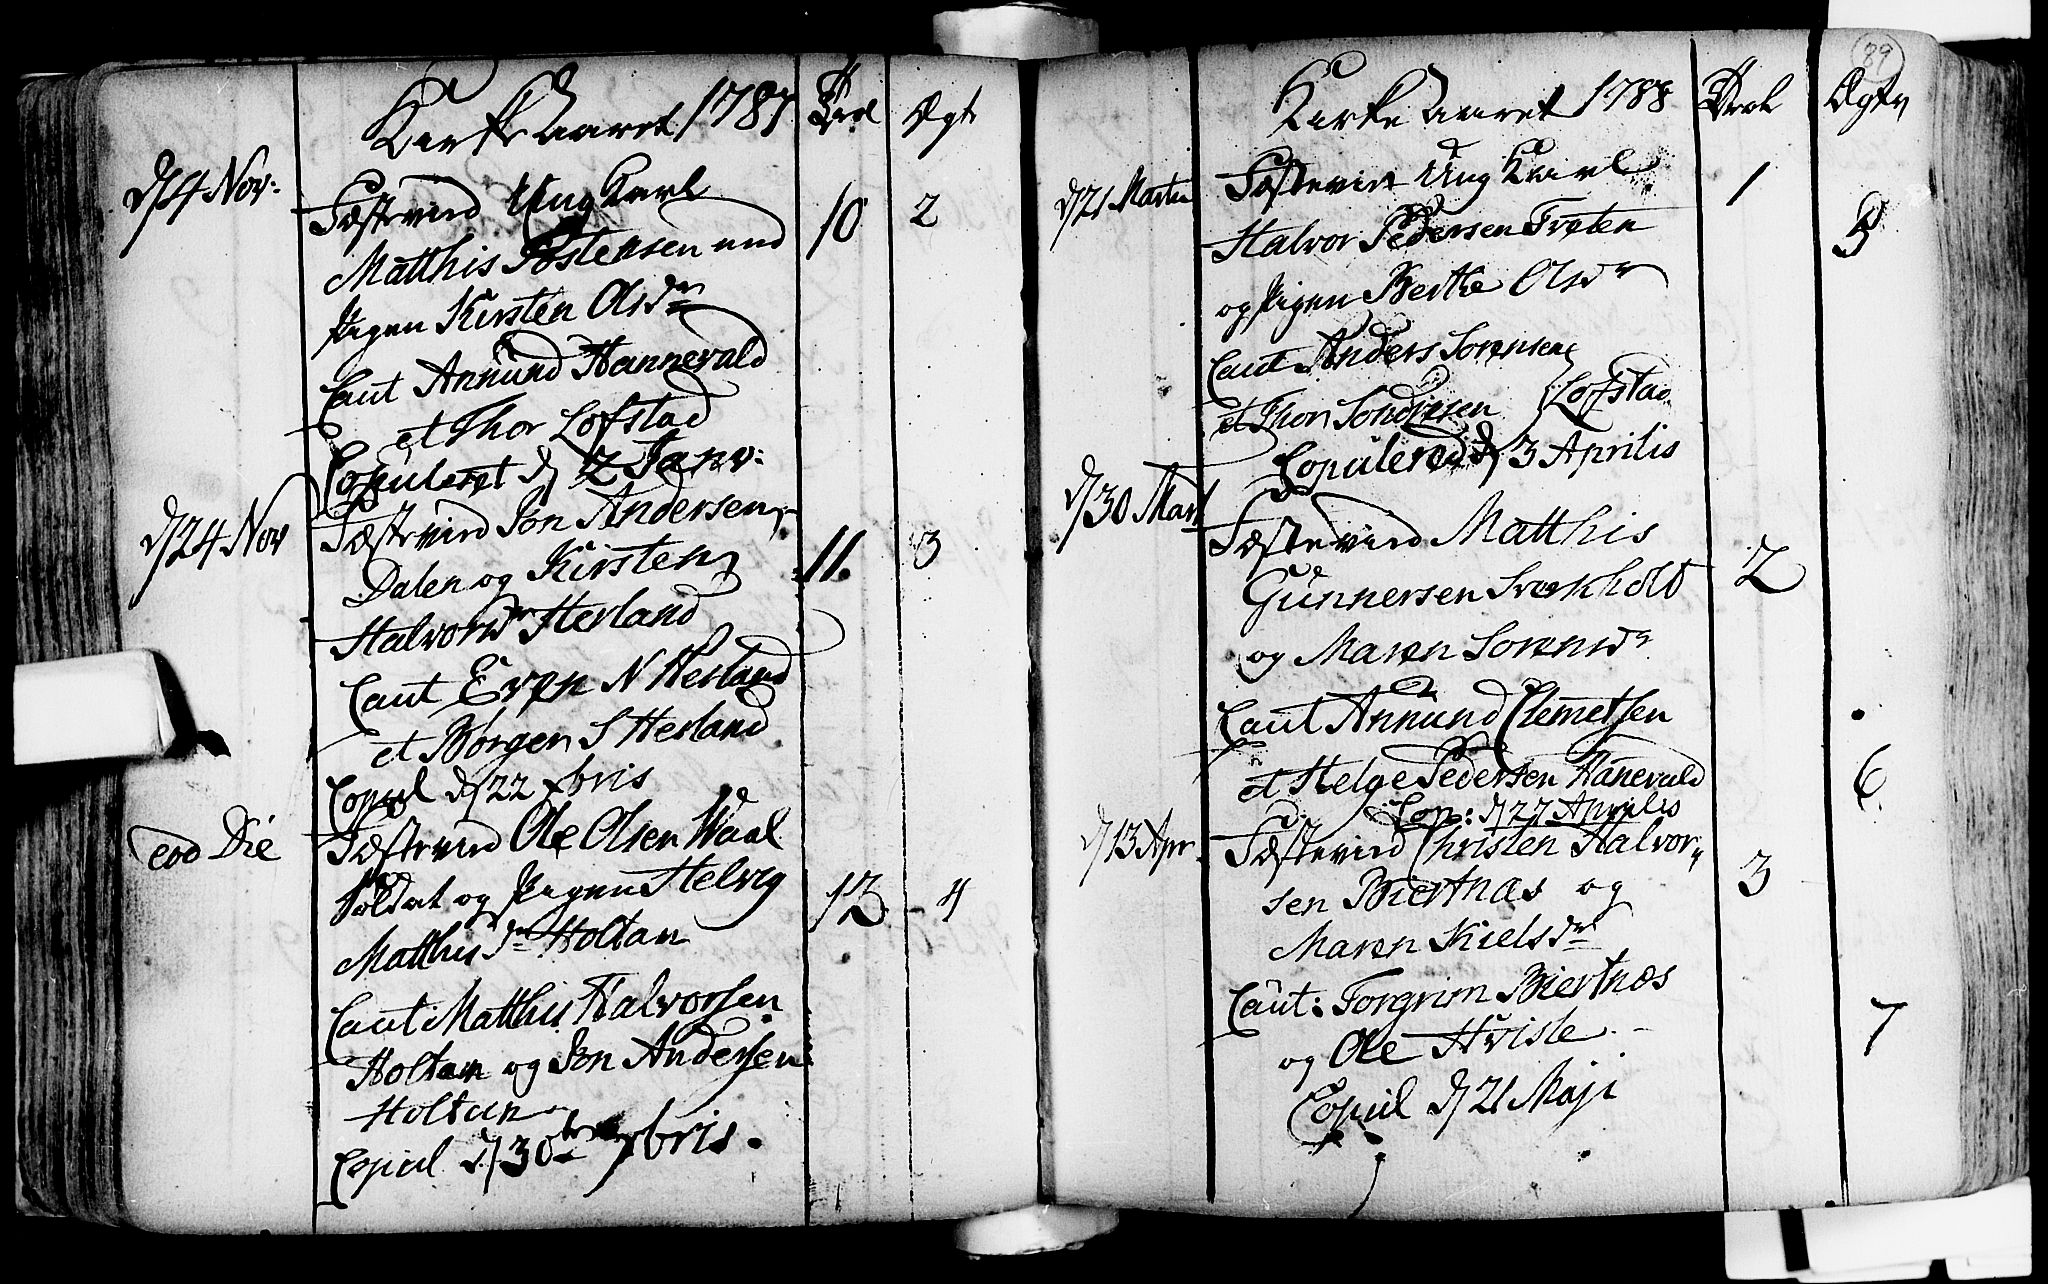 Kirke Aaret 1787
Trol
Ægt
d 4 Nov:
Fæstevird Ung Karl
10
2
Matthis Postensen med
Pigen Kirsten Olsdr
Caut Annund Hannevald
et Thor Lofstad
Copuleret d 2 Janv:
d 24 Nov
Fæstevird Jon Andersen
11.
3
Dalen og Kirsten
Halvorsdr Hesland
Caut Even N Hesland
et Borgen S Hesland
Copul d 22 xbris
eod Die
Fæstevird Ole Olsen Waal
Soldat og Pigen Helvig
13
4
Matthisdr Holtan
Caut Matthis Halvorsen
Holtan og Jon Andersen
Holtan
Copul d 30te xbris.
89
Kirke Aaret 1788
Trol
Ægtv
d 21 Martii
Fæstevird Ung Karl
1
5
Halvor Pedersen Trøten
og Pigen Berthe Olsdr
Caut Anders Sorensen
et Thor Sondresen Lofstad
Copulered d 3 Aprilis
d 30 Mart
Fæstevird Matthis
2
Gunnersen Svækholt
og Maren Sorensdr
Caut Annund Clemetsen
et Helge Pedersen Hanevald
6
Cop: d 27 Aprilis
d 13 Apr.
Fæstevird Christen Halvor
3
sen Biertnæs og
Maren Nielsdr
Caut: Torgrim Biertnæs
og Ole Hvisle
7
Copul d 21 Maji